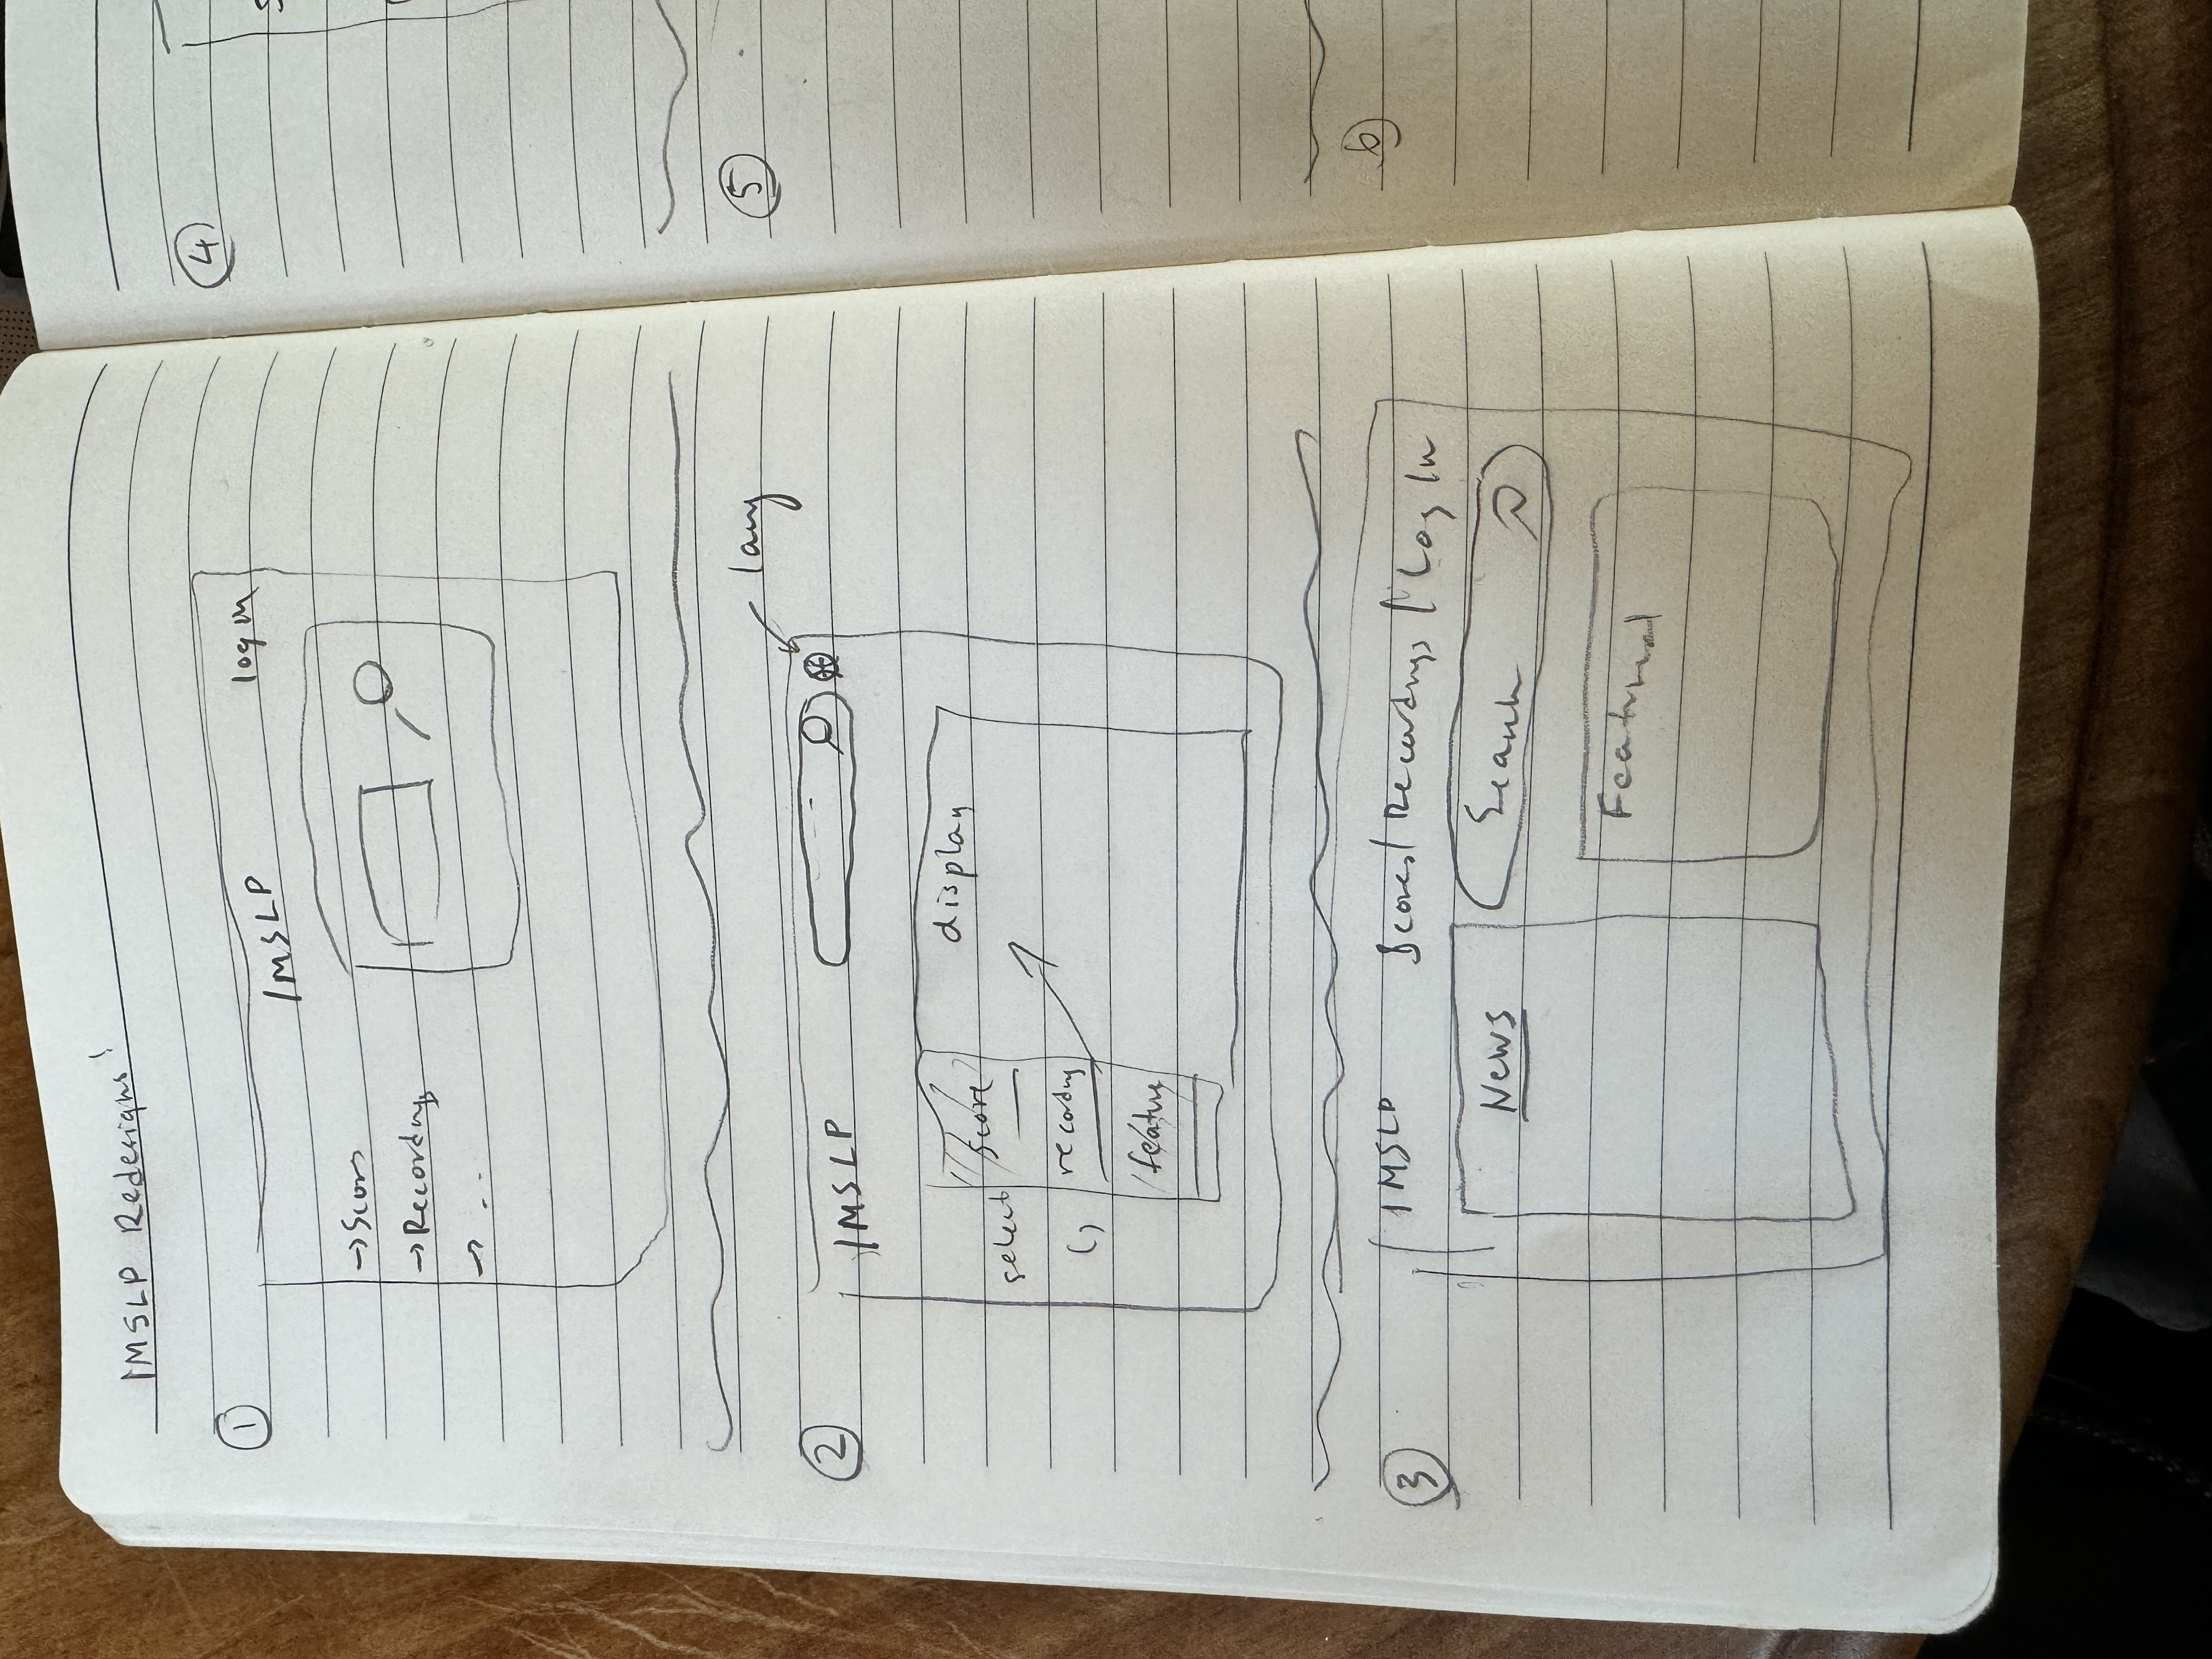 IMSLP Redesigns!
1
IMSLP log in
→ Scores
→ Recordings
→ ..
2
lang
IMSLP
display
score
select
recording
()
feature
3
IMSLP Scores / Recordings / Log In
News
Search
Featured
4
S
5
6